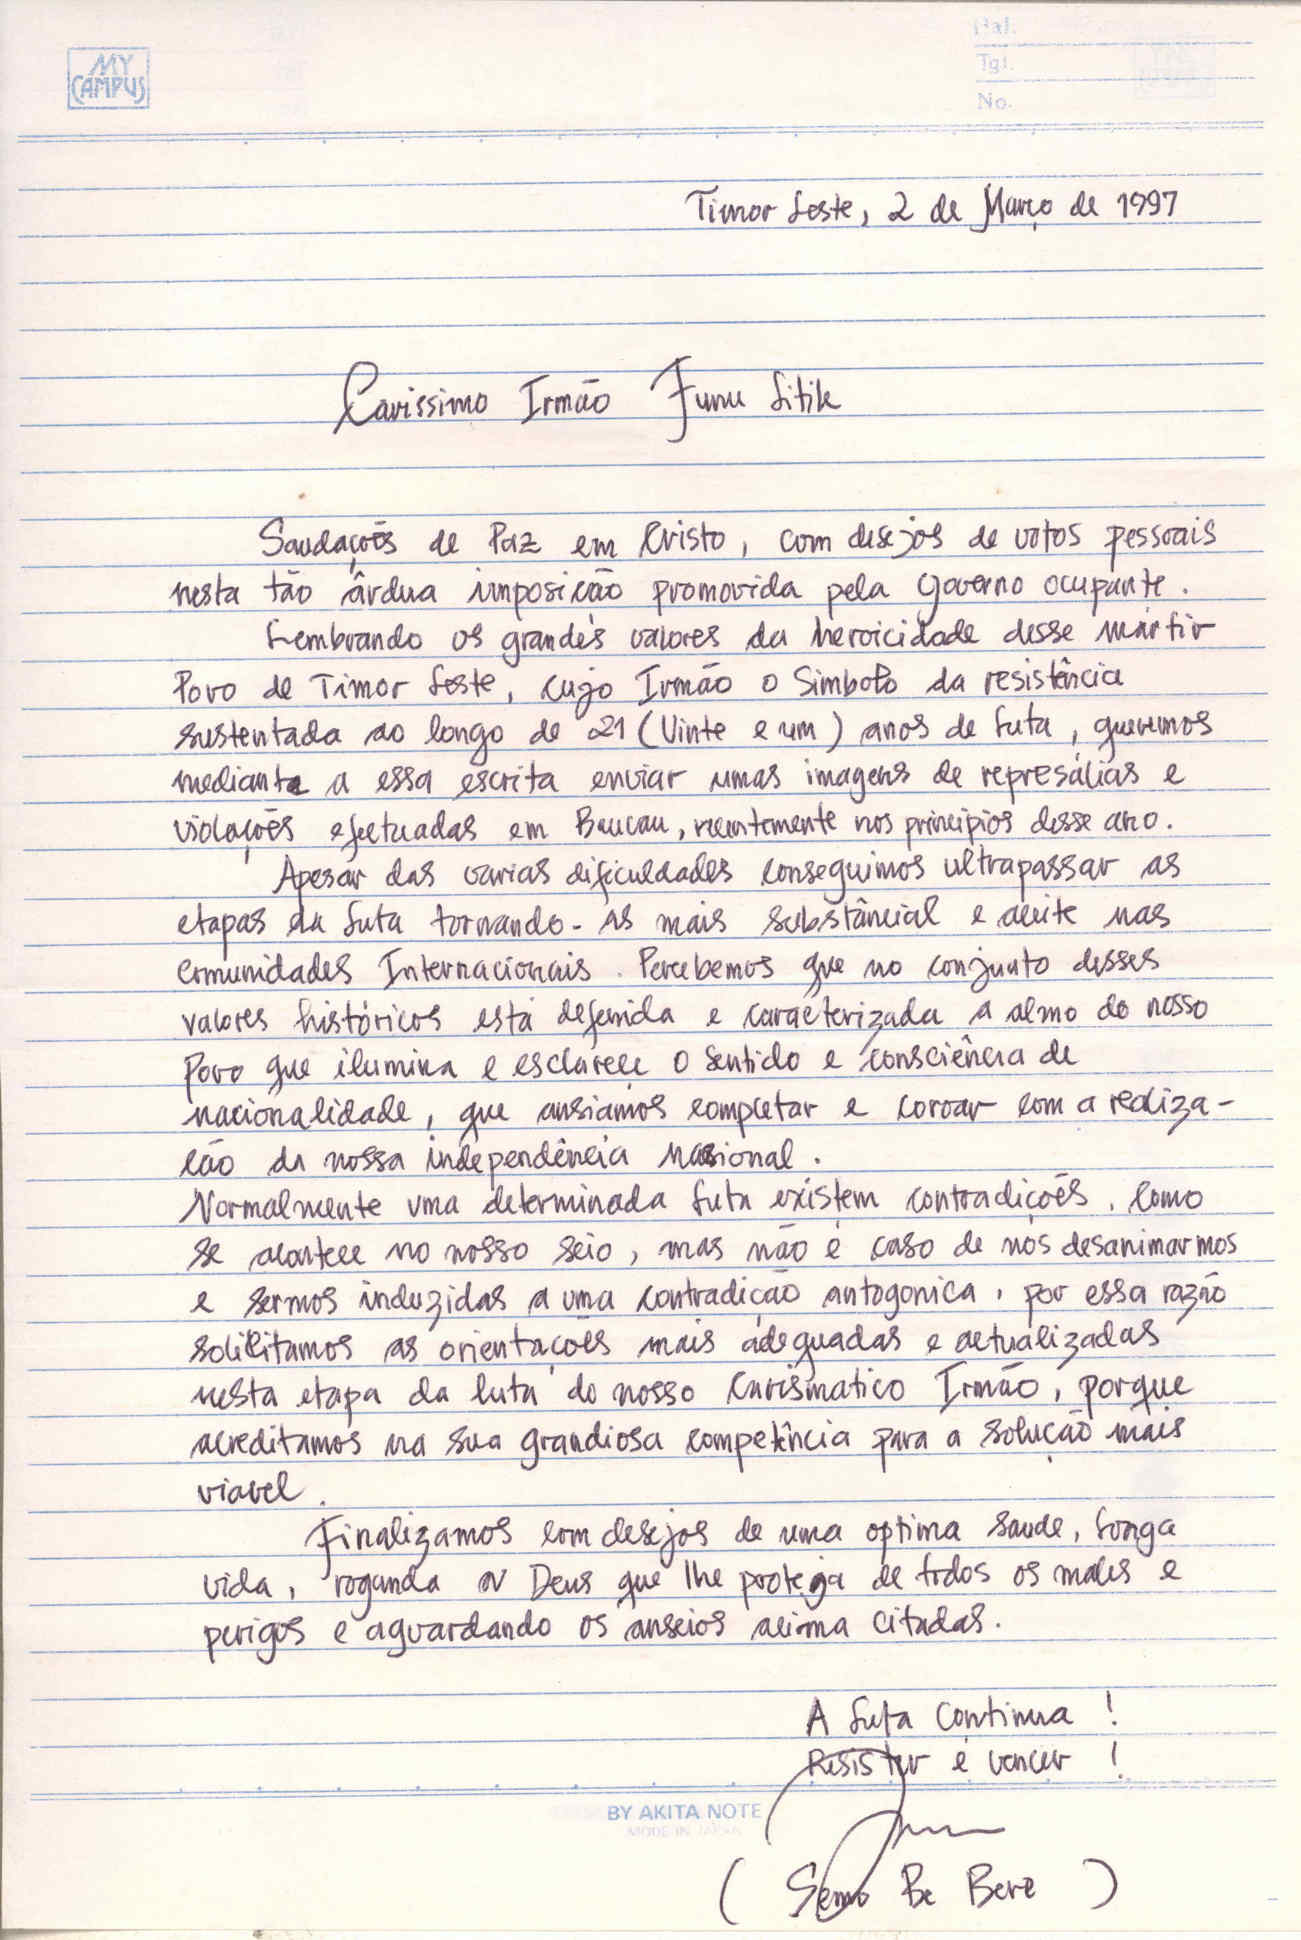 MY
CAMPUS
Hal.
Tgl.
No.
Timor Leste, 2 de Março de 1997
Carissimo Irmão Funu Litik
Saudações de Paz em Cristo, com desejos de votos pessoais
nesta tão árdua imposição promovida pela Governo ocupante.
Lembrando os grandes valores da heroicidade desse martir
Povo de Timor Leste, cujo Irmão o Simbolo da resistência
sustentada ao longo de 21 (Vinte e um) anos de luta, queremos
mediante a essa escrita enviar umas imagens de represálias e
violações efectuadas em Baucau, recentemente nos principios desse ano.
Apesar das varias dificuldades conseguimos ultrapassar as
etapas da luta tornando-as mais substâncial e aceite nas
comunidades Internacionais. Percebemos que no conjunto desses
valores históricos está defenida e caracterizada a alma do nosso
Povo que ilumina e esclarece o sentido e consciência de
nacionalidade, que ansiamos completar e coroar com a realiza-
ção da nossa independência nacional.
Normalmente uma determinada luta existem contradições, como
se acontece no nosso seio, mas não é caso de nos desanimarmos
e sermos induzidas a uma contradição antogonica, por essa razão
solicitamos as orientações mais adequadas e actualizadas
nesta etapa da luta do nosso Carismatico Irmão, porque
acreditamos na sua grandiosa competência para a solução mais
viavel.
Finalizamos com desejos de uma optima saude, longa
vida, rogando a Deus que lhe proteja de todos os males e
perigos e aguardando os anseios acima citadas.
A luta continua !
Resister é vencer !
BY AKITA NOTE
MODE IN JAPAN
( Semo Be Bere )